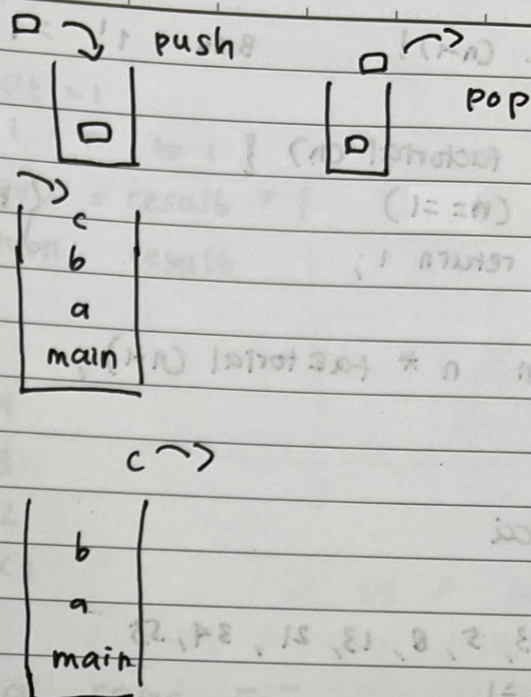 push
pop
c
b
a
main
c
b
a
main